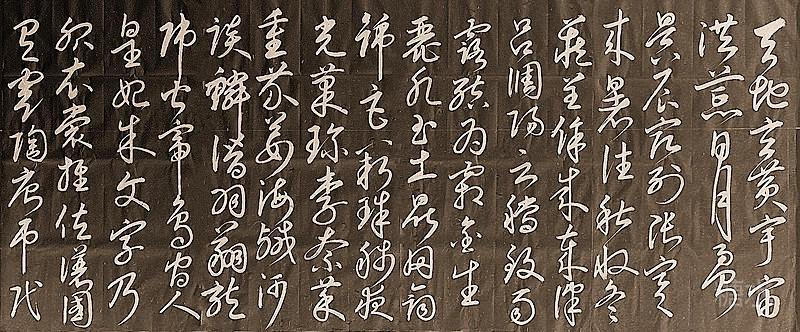 天地玄黃宇宙
洪荒日月盈
昃辰宿列張寒
來暑往秋收冬
藏閏餘成歲律
呂調陽雲騰致雨
露結為霜金生
麗水玉出崑岡劍
號巨闕珠稱夜
光菓珍李柰菜
重芥薑海鹹河
淡鱗潛羽翔龍
師火帝鳥官人
皇始制文字乃
服衣裳推位讓國
有虞陶唐弔民